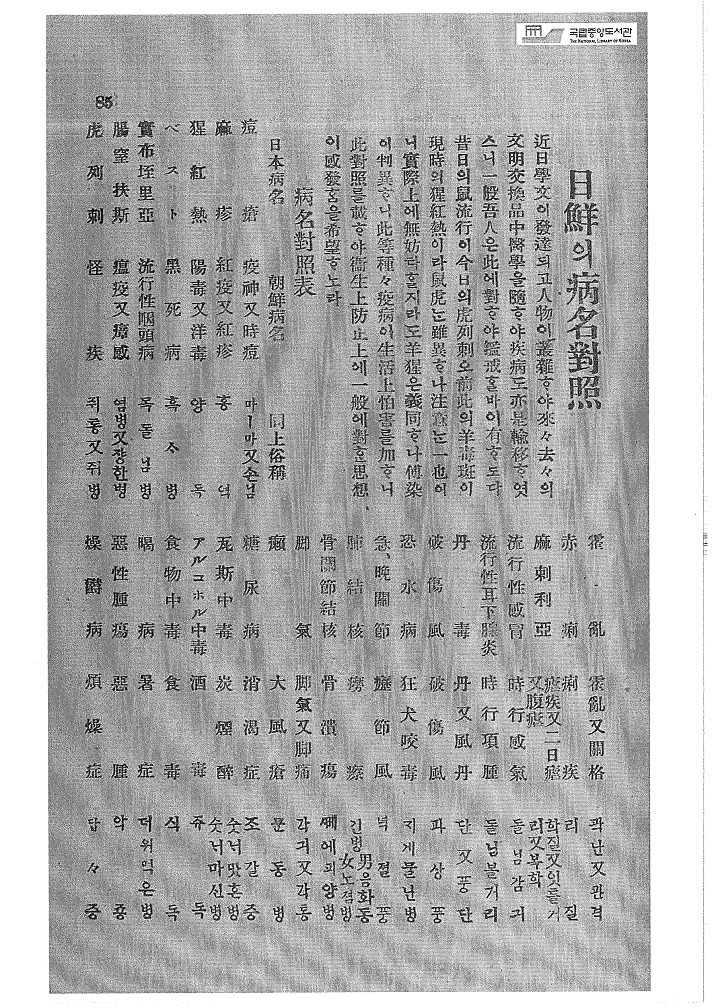 국립중앙도서관
THE NATIONAL LIBRARY OF KOREA
日鮮의病名對照
近日學文이發達되고人物이叢雜ᄒᆞ야來々去々의
文明交換品中醫學을隨ᄒᆞ야疾病도亦是輸移ᄒᆞ엿
스니一般吾人은此에對ᄒᆞ야鑑戒ᄒᆞᆯ바이有ᄒᆞ도다
昔日의鼠流行이今日의虎列剌오前此의羊毒斑이
現時의猩紅熱이라鼠虎ᄂᆞᆫ雖異ᄒᆞ나注意ᄂᆞᆫ一也이
니實際上에無妨타ᄒᆞᆯ지라도羊猩은義同ᄒᆞ나傳染
이判異ᄒᆞ니此等種々疫病이生活上怕害를加ᄒᆞ니
此對照를載ᄒᆞ야衞生上防止上에一般에對ᄒᆞᆫ思想、
이感發홈을希望ᄒᆞ노라
病名對照表
日本病名 朝鮮病名 同上俗稱
痘瘡 疫神又時痘 마ー마又손님
麻疹 紅疫又紅疹 홍역
猩紅熱 陽毒又洋毒 양독
ペスト 黑死病 흑사병
實布垤里亞 流行性咽頭病 목돌님병
腸窒扶斯 瘟疫又瘴感 염병又쟝한병
虎列剌 怪疾 쥐통又쥐병
85
霍亂 霍亂又關格 곽난又관격
赤痢 痢疾 리질
麻剌利亞 瘧疾又二日瘧又腹瘧 학질又잇틀거리又복학
流行性感冒 時行感氣 돌님감긔
流行性耳下腺炎 時行項腫 돌님볼거리
丹毒 丹又風丹 단又풍단
破傷風 破傷風 파상풍
恐水病 狂犬咬毒 지게물닌병
急、晩關節 癧節風 녁절풍
肺結核 癆瘵 긴병男음화동女노점병
骨關節結核 骨潰瘍 뼤에괴양병
脚氣 脚氣又脚痛 각긔又각통
癩 大風瘡 문동병
糖尿病 消渴症 조갈증
瓦斯中毒 炭煙醉 숫늬맛흔병숫늬마신병
アルコホル中毒 酒毒 쥬독
食物中毒 食毒 식독
暍病 暑症 더위먹은병
惡性腫瘍 惡腫 악죵
燥鬱病 煩燥症 답々증